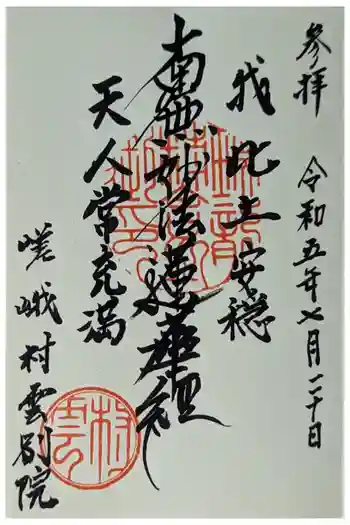 参拝 令和五年七月二十日
我此土安穏
南無妙法蓮華経
天人常充満
嵯峨村雲別院
村雲